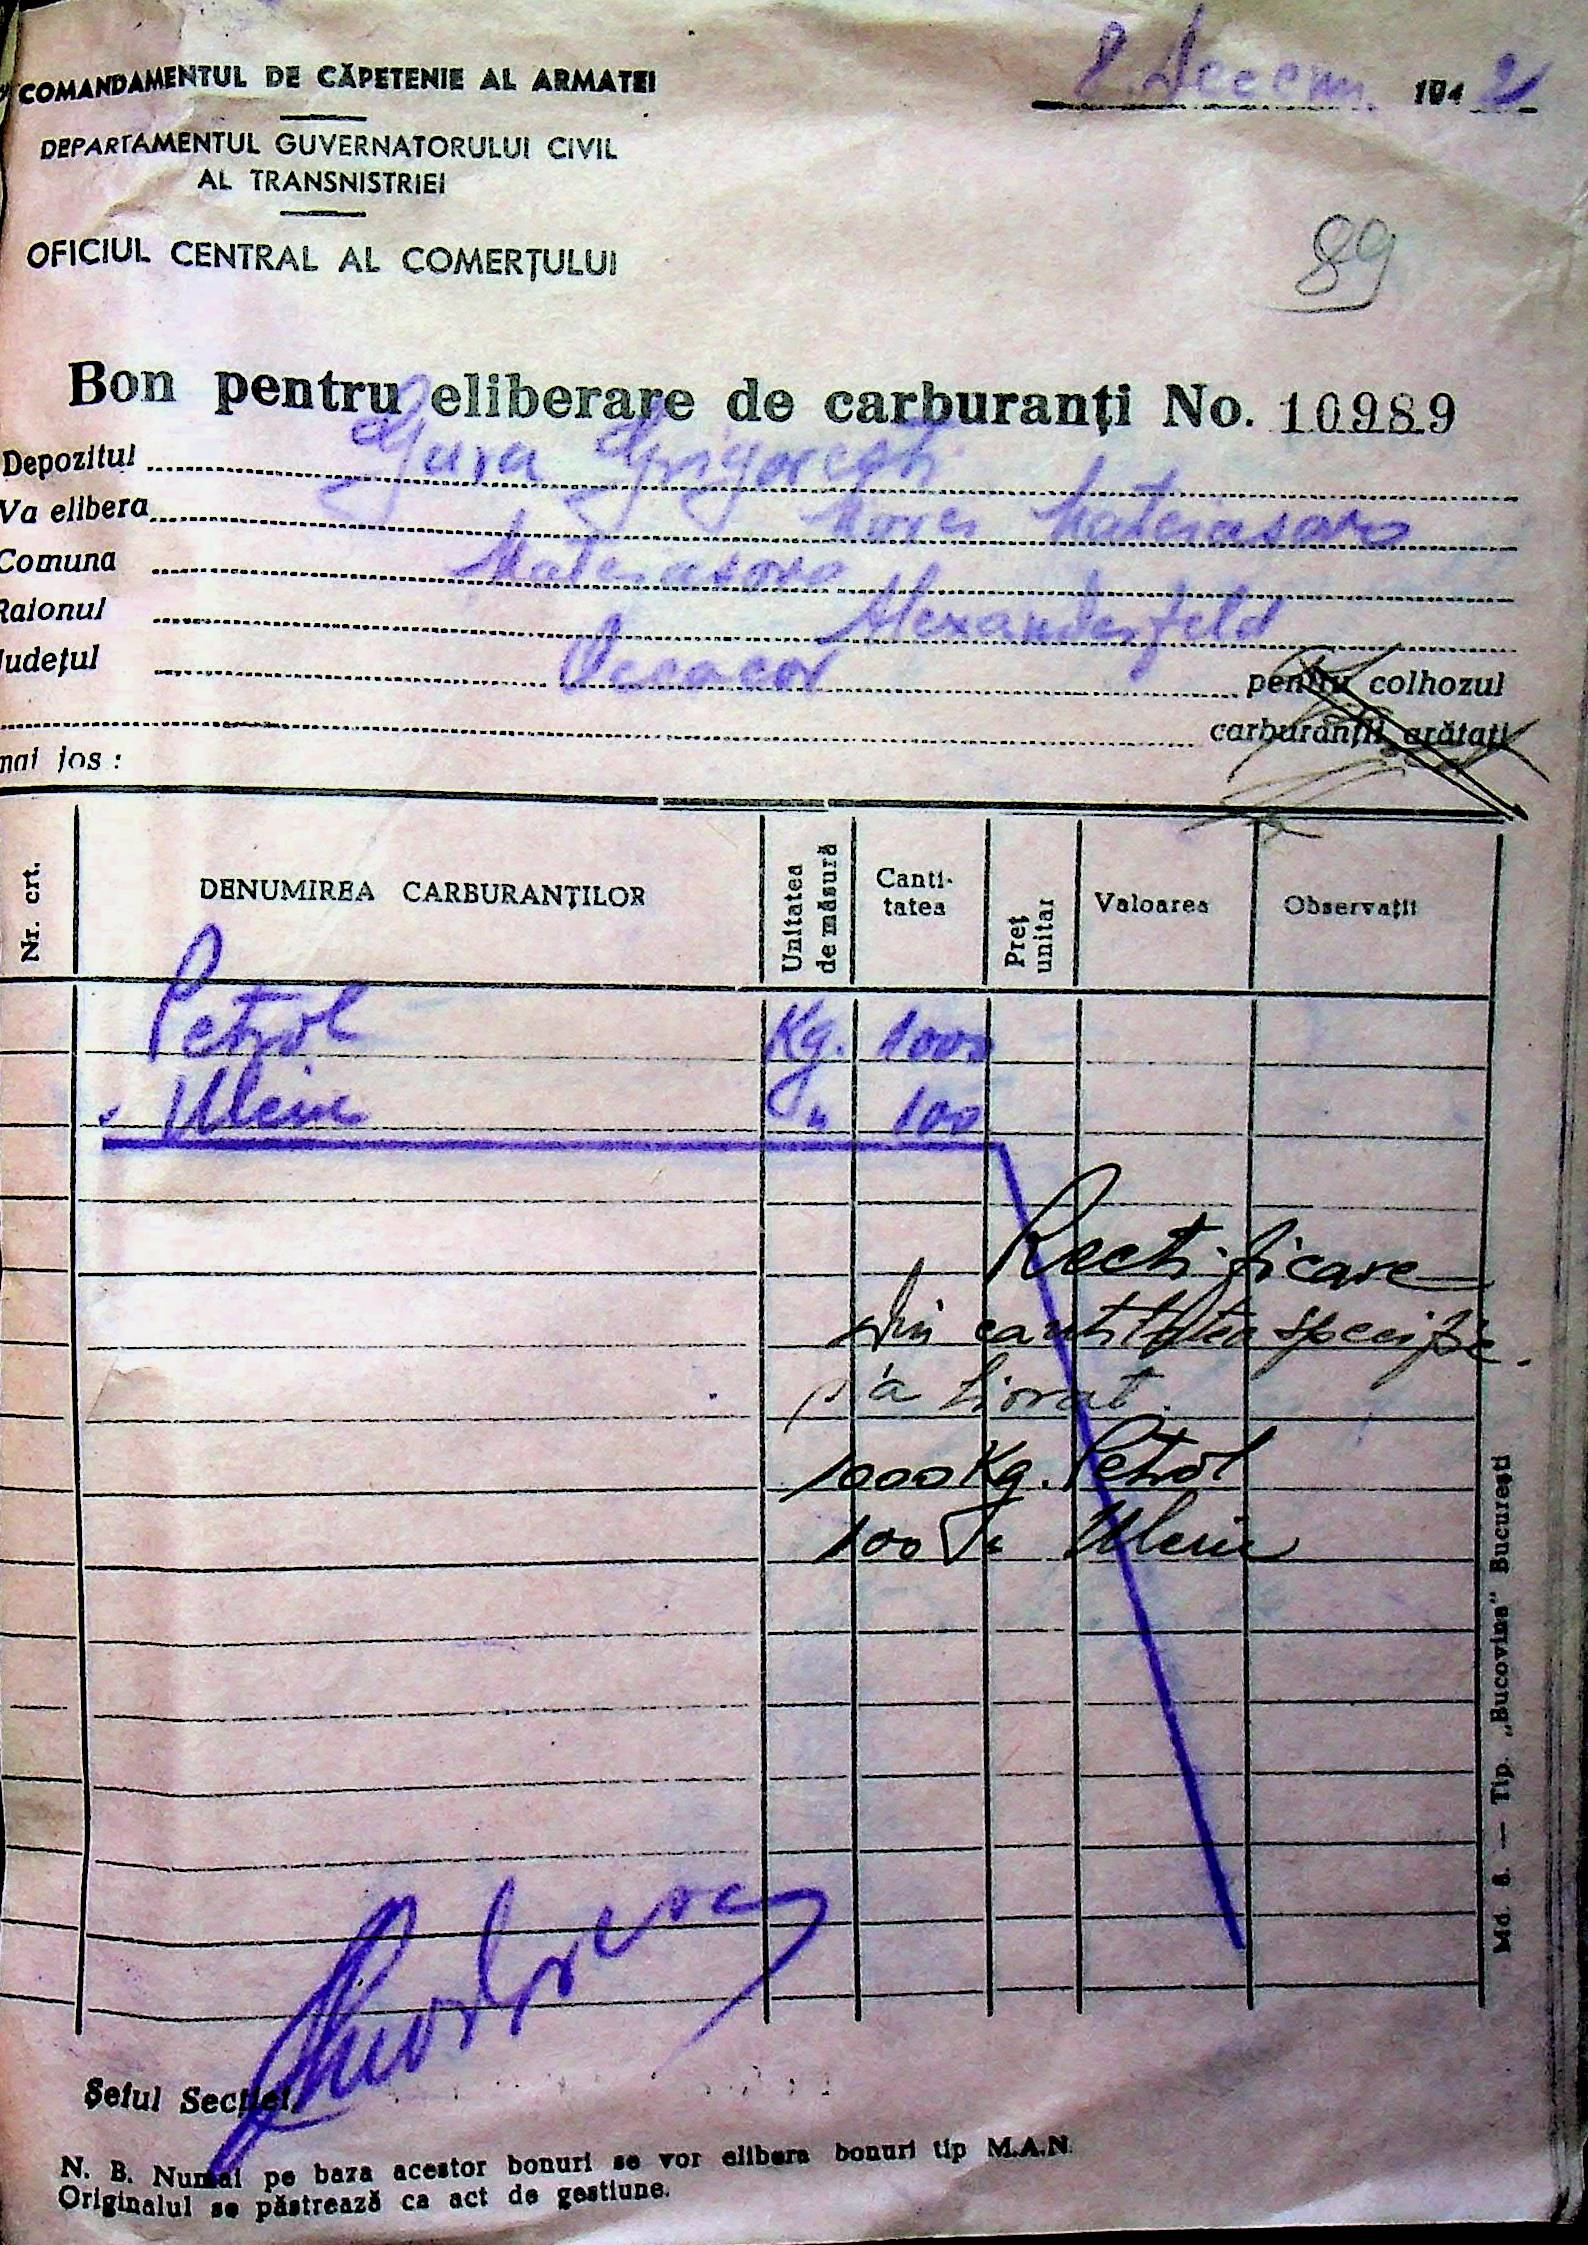 COMANDAMENTUL DE CĂPETENIE AL ARMATEI
8. Decem. 1942
DEPARTAMENTUL GUVERNATORULUI CIVIL
AL TRANSNISTRIEI
OFICIUL CENTRAL AL COMERȚULUI
89
Bon pentru eliberare de carburanți No. 10989
Depozitul Gura Grigorești
Va elibera
Comuna
Raionul Alexanderfeld
Județul Oceacov pentru colhozul
carburanții arătați
mai jos :
Nr. crt.
DENUMIREA CARBURANȚILOR
Unitatea de măsură
Canti-
tatea
Preț unitar
Valoarea
Observații
Petrol Kg. 1000
Uleiu " 100
Rectificare
din cantitatea specific.
s'a livrat.
1000 Kg. Petrol
100 " Uleiu
Șeful Secției,
N. B. Numai pe baza acestor bonuri se vor elibera bonuri tip M.A.N.
Originalul se păstrează ca act de gestiune.
Md. 8. — Tip. „Bucovina" București